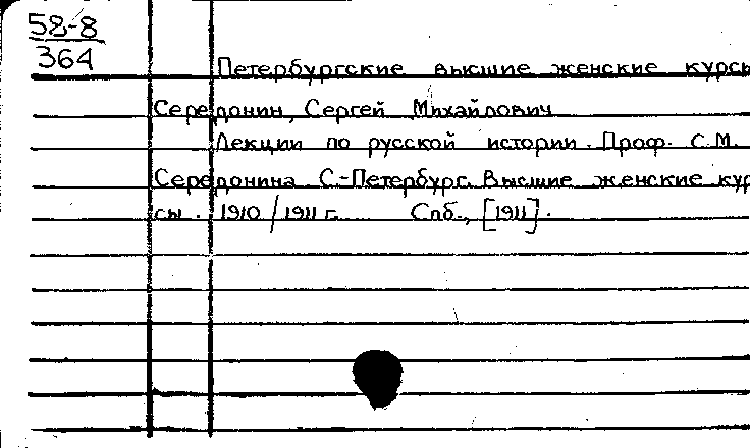 58-8
364
Петербургские высшие женские курсы
Середонин, Сергей Михайлович
Лекции по русской истории. Проф. С.М.
Середонина С-Петербург. Высшие женские кур
сы. 1910/1911 г. Спб., [1911].